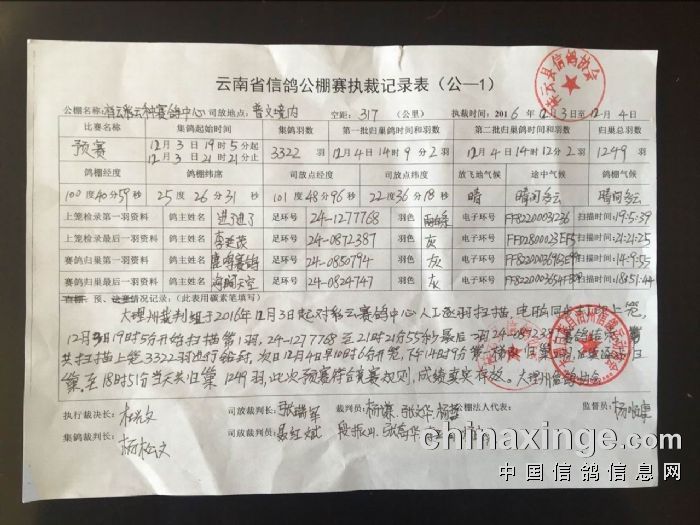 云南省信鸽公棚赛执裁记录表（公—1）
公棚名称：祥云彩云种赛鸽中心 司放地点：普文境内 空距：317（公里） 执裁时间：2016年12月3日至12月4日
比赛名称 集鸽起始时间 集鸽羽数 第一批归巢鸽时间和羽数 第二批归巢鸽时间和羽数 归巢总羽数
预赛 12月3日19时5分起 12月3日21时21分止 3322羽 12月4日14时9分2羽 12月4日14时12分2羽 1249羽
鸽棚经度 鸽棚纬度 司放点经度 司放点纬度 放飞地气候 途中气候 鸽棚气候
100度40分59秒 25度26分31秒 101度48分96秒 22度36分18秒 晴 晴间多云 晴间多云
上笼检录第一羽资料 鸽主姓名 进了进了 足环号 24-1277768 羽色 电子环号 FF8220003C236 扫描时间：19:5:39
上笼检录最后一羽资料 鸽主姓名 李廷茂 足环号 24-0872387 羽色 灰 电子环号 扫描时间：21:21:25
赛鸽归巢第一羽资料 鸽主姓名 鹿鸣赛鸽 足环号 24-0850794 羽色 灰 电子环号 扫描时间：14:9:55
赛鸽归巢最后一羽资料 鸽主姓名 海阔天空 足环号 24-0824747 羽色 灰 电子环号 扫描时间：18:51:44
预、决赛情况记录：（此表用碳素笔填写）
大理州裁判组于2016年12月3日起对彩云赛鸽中心人工逐羽扫描，电脑同步上笼，
12月3日19时5分开始扫描第1羽，24-1277768至21时21分55秒最后一羽24-0872387赛鸽结束，
共扫描上笼3322羽进行给封，次日12月4日早10时6分开笼，下午14时9分第一
巢至18时51分当天共归巢1249羽，此次预赛符合竞赛规则，成绩真实存放。大理州信鸽协会
执行裁决长： 司放裁判长：张瑞军 裁判员： 公棚法人代表： 监督员：
集鸽裁判长：杨松文 司放裁判员：聂红斌
祥云县信鸽协会
chinaxinge.com
中国信鸽信息网